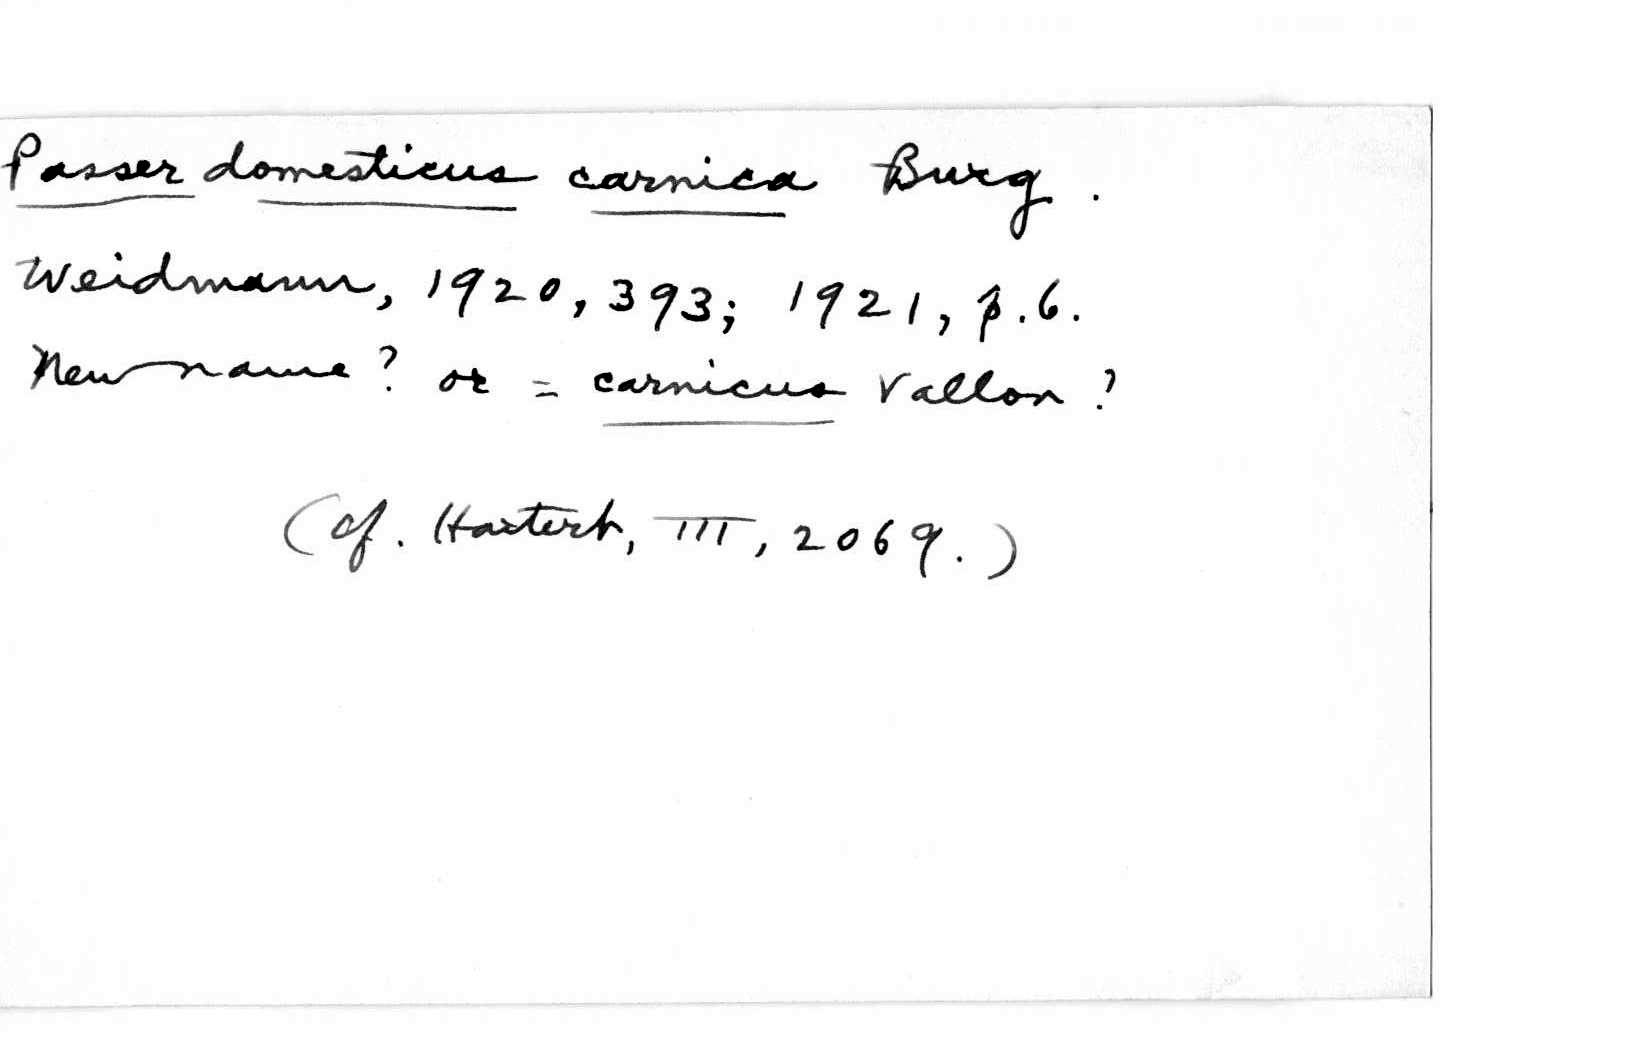 Passer domesticus carnica Burg.
Weidmann, 1920, 393; 1921, p.6.
New name? or = carnicus Vallon?
(cf. Hartert, III, 2069.)